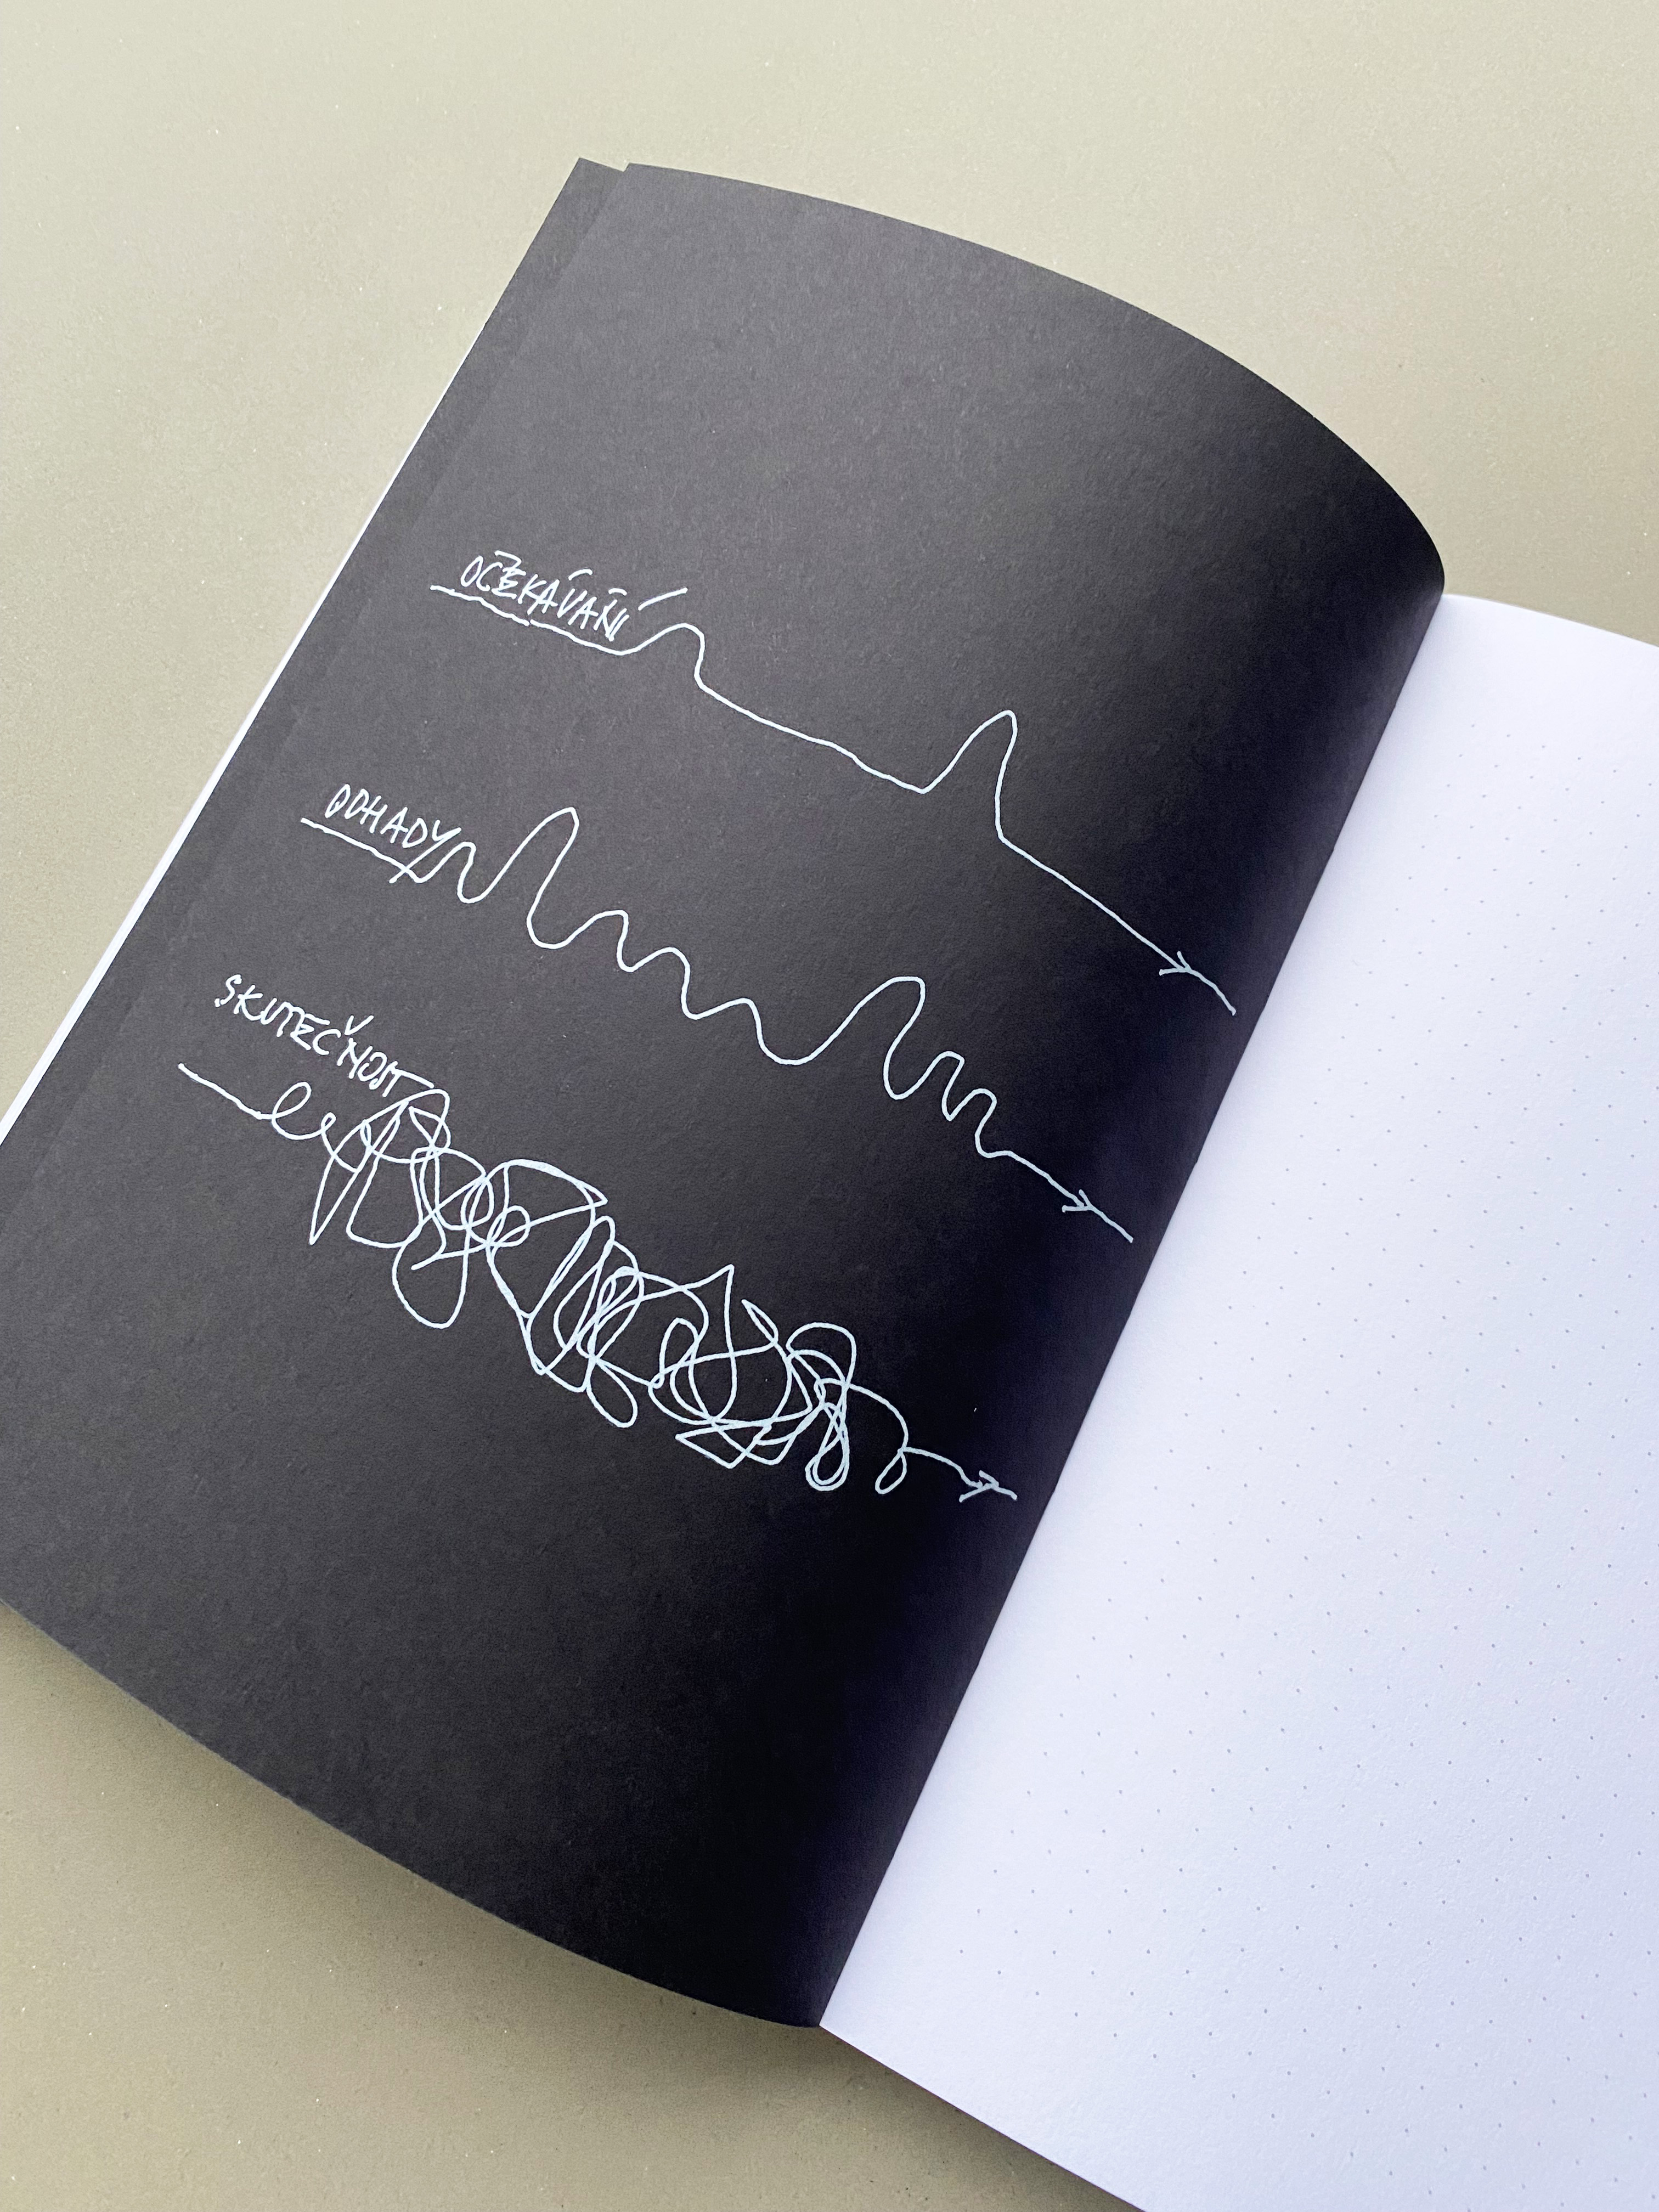 OČEKÁVÁNÍ
ODHADY
SKUTEČNOST